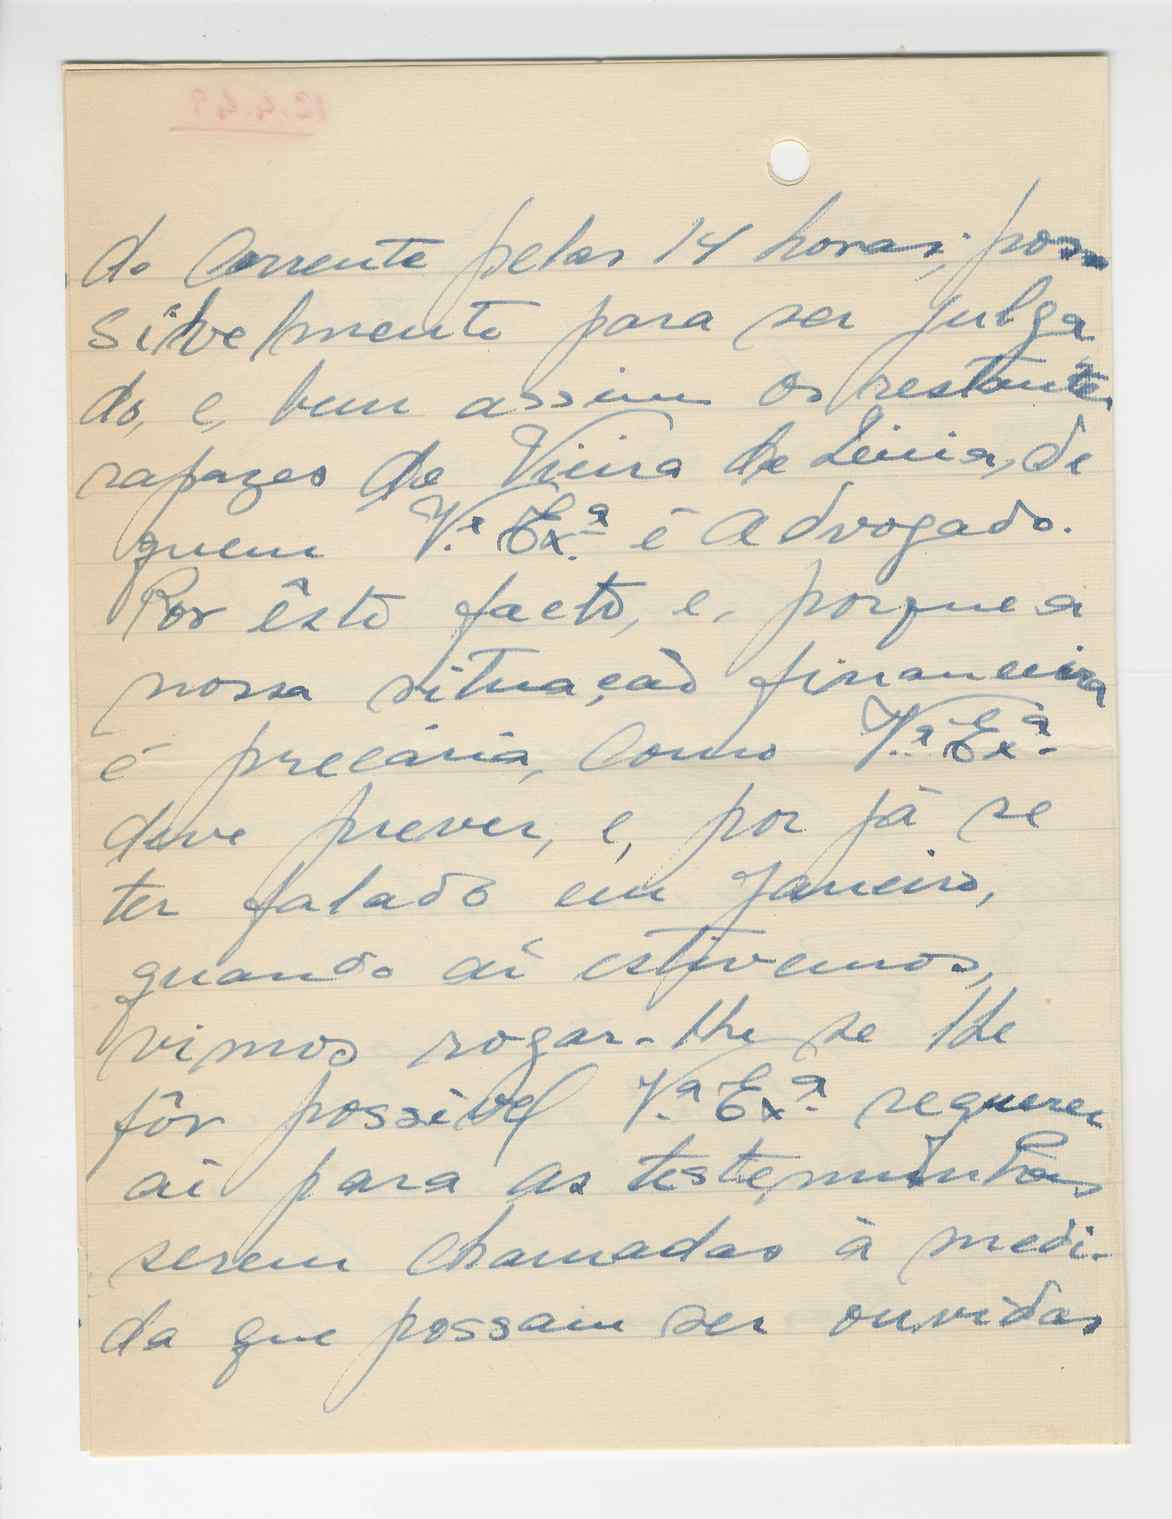 do corrente pelas 14 horas, pos
sivelmente para ser julga
do, e, bem assim os restantes
rapazes de Vieira de Leiria, de
quem V.ª Ex.ª é advogado.
Por êsto facto, e, porque a
nossa situação financeira
é precária, como V.ª Ex.ª
deve prever, e, por já se
ter falado em Janeiro,
quando aí estivemos,
vimos rogar-lhe se lhe
fôr possível V.ª Ex.ª requerer
aí para as testemunhas
serem chamadas à medi-
da que possam ser ouvidas